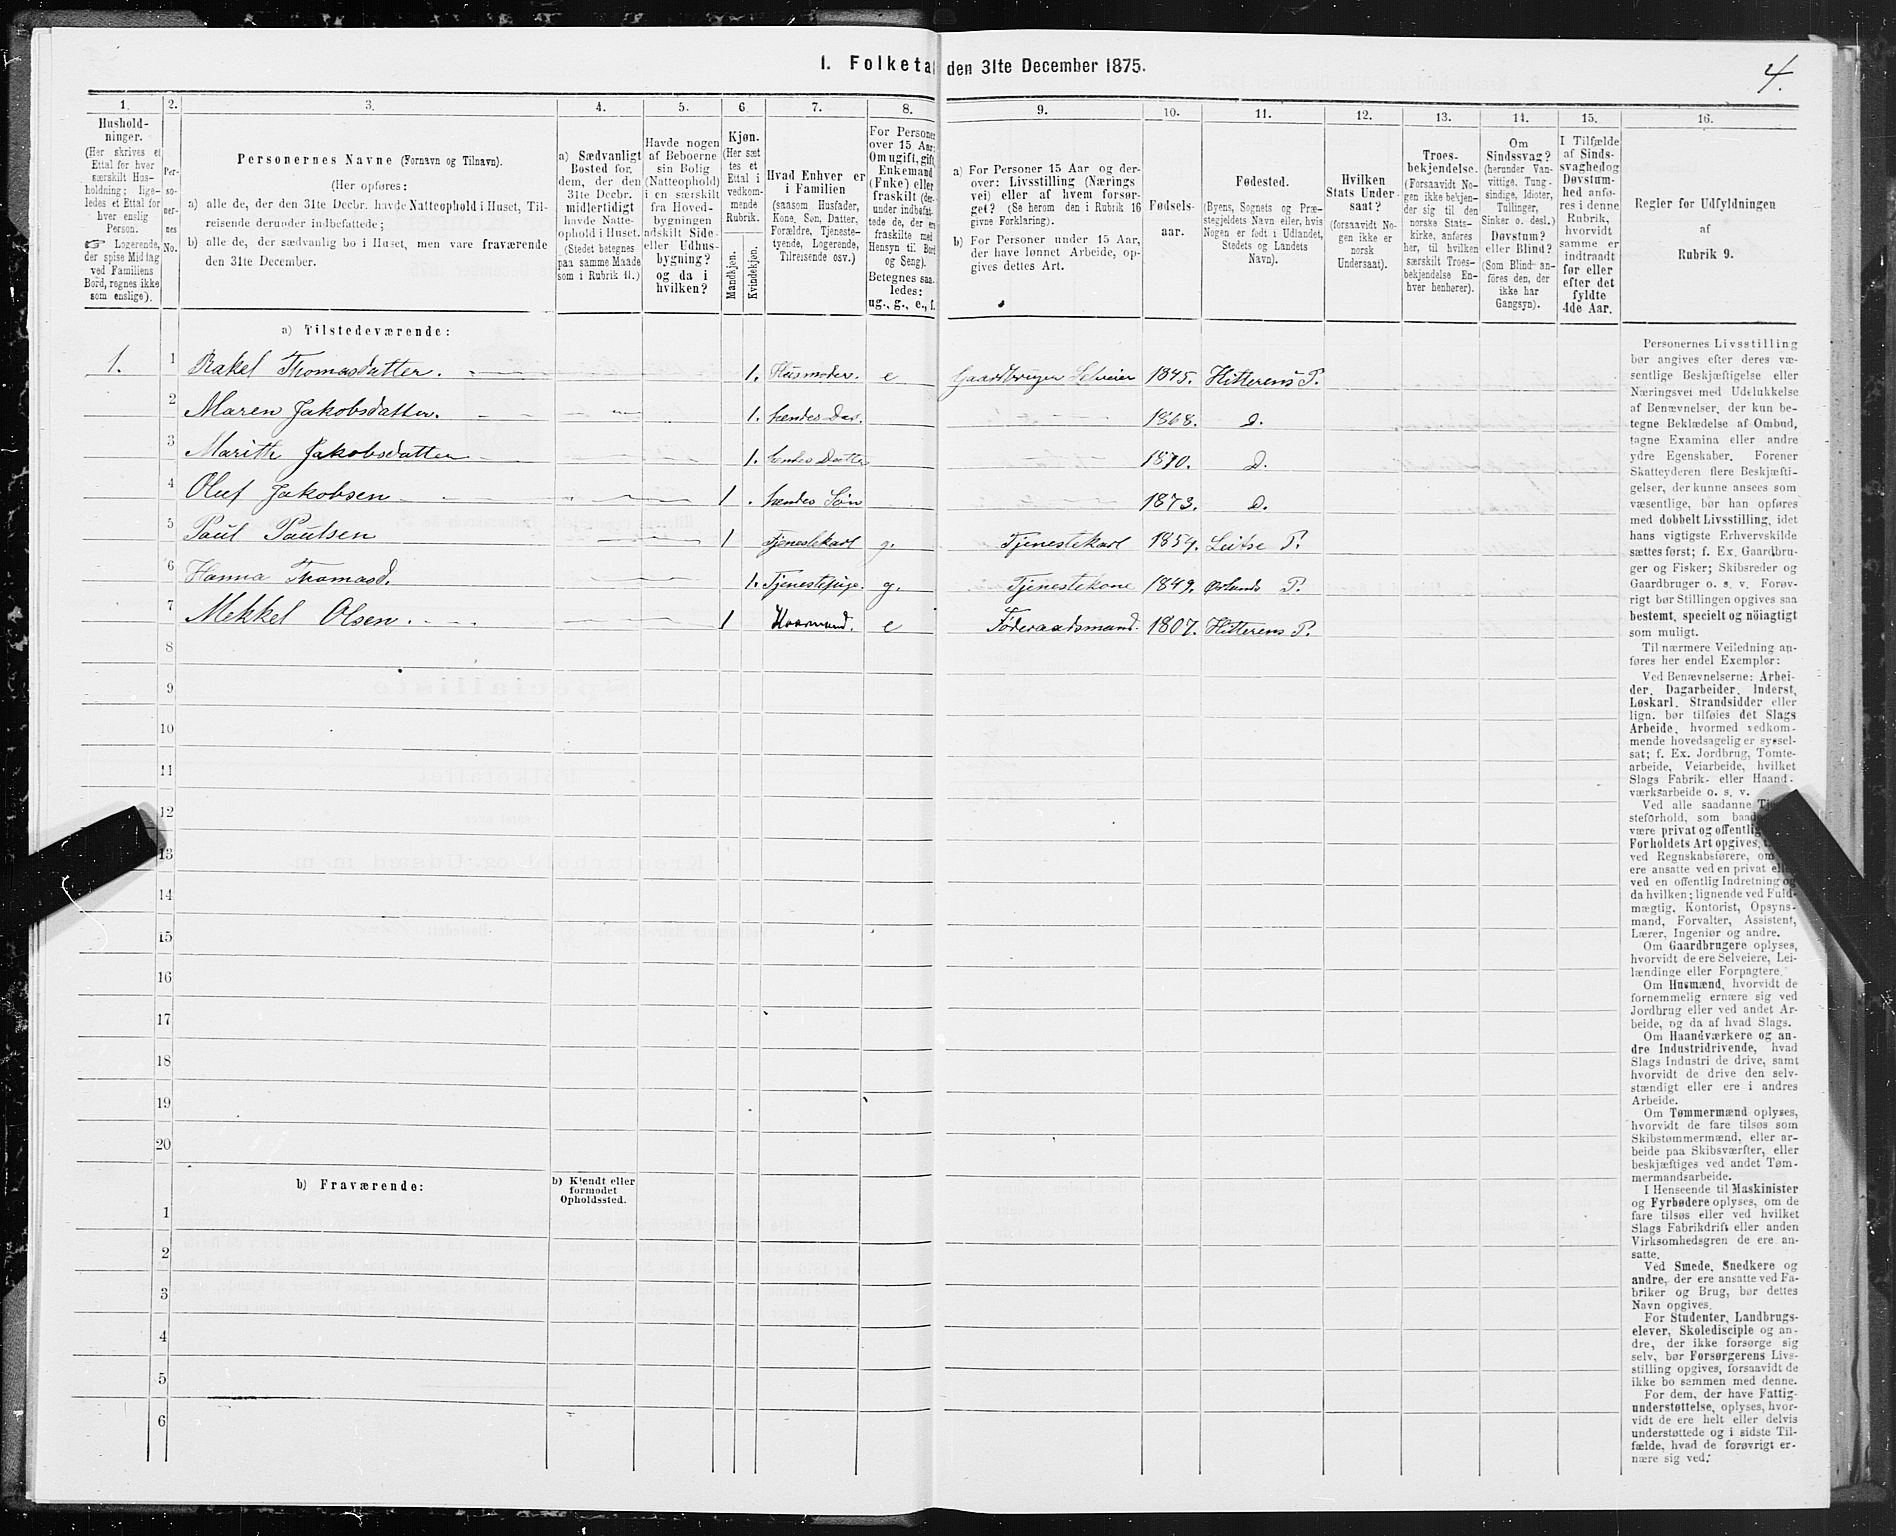 1. Folketal den 31te December 1875.
4.
1.
2.
3.
4.
5.
6
7.
8.
9.
10.
11.
12.
13.
14.
15.
16.
Hushold-
ninger.
(Her skrives et
Ettal for hver
særskilt Hus-
holdning; lige-
ledes et Ettal for
hver enslig
Person.
☞ Logerende,
der spise Middag
ved Familiens
Bord, regnes ikke
som enslige).
Per-
so-
ner-
nes
No.
Personernes Navne (Fornavn og Tilnavn).
(Her opføres:
a) alle de, der den 31te Decbr. havde Natteophold i Huset, Til-
reisende derunder indbefattede;
b) alle de, der sædvanlig bo i Huset, men vare fraværende
den 31te December.
a) Sædvanligt
Bosted for
dem, der den
31te Decbr.
midlertidigt
havde Natte-
ophold i Huset.
(Stedet betegnes
paa samme Maade
som i Rubrik 11.)
Havde nogen
af Beboerne
sin Bolig
(Natteophold)
i en særskilt
fra Hoved-
bygningen
adskilt Side-
eller Udhus-
bygning?
og da i
hvilken?
Kjøn.
(Her sæt
tes et
Ettal i
vedkom-
mende
Rubrik.
Mandkjøn.
Kvindekjøn.
Hvad Enhver er
i Familien
(saasom Husfader,
Kone, Søn, Datter,
Forældre, Tjeneste-
tyende, Logerende,
Tilreisende osv.)
For Personer
over 15 Aar:
Om ugift, gift,
Enkemand
(Enke) eller
fraskilt (der-
under indbefat-
tede de, der ere
fraskilte med
Hensyn til Bord
og Seng).
Betegnes saa-
ledes:
ug., g., e., f.
a) For Personer 15 Aar og der-
over: Livsstilling (Nærings
vei) eller af hvem forsør-
get? (Se herom den i Rubrik 16
givne Forklaring).
b) For Personer under 15 Aar,
der have lønnet Arbeide, op-
gives dettes Art.
Fødsels-
aar.
Fødested.
(Byens, Sognets og Præ-
stegjeldets Navn eller, hvis
Nogen er født i Udlandet,
Stedets og Landets
Navn).
Hvilken
Stats Under-
saat?
(forsaavidt No-
gen ikke er
norsk
Undersaat).
Troes-
bekjendelse.
(Forsaavidt No-
gen ikke bekjen-
der sig til den
norske Stats-
kirke, anføres
her, til hvilken
særskilt Troes-
bekjendelse En-
hver henhører).
Om
Sindssvag?
(herunder Van-
vittige, Tung-
sindige, Idioter,
Tullinger,
Sinker o. desl.)
Døvstum?
eller Blind?
(Som Blind an-
føres den, der
ikke har
Gangsyn).
I Tilfælde
af Sinds-
svaghed og
Døvstum-
hed anfø-
res i denne
Rubrik,
hvorvidt
samme er
indtraadt
før eller
efter det
fyldte
4de Aar.
Regler for Udfyldningen
af
Rubrik 9.
a) Tilstedeværende:
1. 1 Rakel Thomasdatter. 1. Husmoder. e Gaardbruger Selveier 1845. Hitterens P.
2 Maren Jakobsdatter. 1. hendes Dat. 1868. d.
3 Marith Jakobsdatter 1. hendes Datter 1870. d.
4 Oluf Jakobsen 1 . hendes Søn 1873. d.
5 Paul Paulsen 1 Tjenestekarl g. Tjenestekarl 1854. P.
6 Hanna Thomasd. 1. Tjenestepige. g. Tjenestekone 1849. Ørlands P.
7 Mekkel Olsen. 1 e Føderaadsmand. 1807. Hitterens P.
8
9
10
11
12
13
14
15
16
17
18
19
20
b) Fraværende:
b) Kjendt eller
formodet
Opholdssted.
1
2
3
4
5
6
Personernes Livsstilling
bør angives efter deres væ-
sentlige Beskjæftigelse eller
Næringsvei med Udelukkelse
af Benævnelser, der kun be-
tegne Beklædelse af Ombud,
tagne Examina eller andre
ydre Egenskaber. Forener
Skatteyderen flere Beskjæfti-
gelser, der kunne ansees som
væsentlige, bør han opføres
med dobbelt Livsstilling, idet
hans vigtigste Erhvervskilde
sættes først; f. Ex. Gaardbru-
ger og Fisker; Skibsreder og
Gaardbruger o. s. v. Forøv-
rigt bør Stillingen opgives saa
bestemt, specielt og nöiagtigt
som muligt.
Til nærmere Veiledning an-
føres her endel Exempler:
Ved Benævnelserne: Arbei-
der, Dagarbeider, Inderst,
Løskarl, Strandsidder eller
lign. bør tilføies det Slags
Arbeide, hvormed vedkom-
mende hovedsagelig er syssel-
sat; f. Ex. Jordbrug, Tomte-
arbeide, Veiarbeide, hvilket
Slags Fabrik- eller Haand-
værksarbeide o. s. v.
Ved alle saadanne
steforhold, som
være privat og offentlig
Forholdets Art opgives,
ved Regnskabsførere, om
ere ansatte ved en privat
ved en offentlig Indretning og
da hvilken; lignende ved Fuld-
mægtig, Kontorist, Opsyns-
mand, Forvalter, Assistent,
Lærer, Ingeniør og andre.
Om Gaardbrugere oplyses,
hvorvidt de ere Selveiere, Lei-
lændinge eller Forpagtere.
Om Husmænd, hvorvidt de
fornemmelig ernære sig ved
Jordbrug eller ved andet Ar-
beide, og da af hvad Slags.
Om Haandværkere og an-
dre Industridrivende, hvad
Slags Industri de drive, samt
hvorvidt de drive den selv-
stændigt eller ere i andres
Arbeide.
Om Tømmermænd oplyses,
hvorvidt de fare tilsøs som
Skibstømmermænd, eller ar-
beide paa Skibsværfter, eller
beskjæftiges ved andet Tøm-
mermandsarbeide.
I Henseende til Maskinister
og Fyrbødere oplyses, om de
fare tilsøs eller ved hvilket
Slags Fabrikdrift eller anden
Virksomhedsgren de ere an-
satte.
Ved Smede, Snedkere og
andre, der ere ansatte ved Fa-
briker og Brug, bør dettes
Navn opgives.
For Studenter, Landbrugs-
elever, Skoledisciple og an-
dre, der ikke forsørge sig
selv, bør Forsørgerens Livs-
stilling opgives, forsaavidt de
ikke bo sammen med denne.
For dem, der have Fattig-
understøttelse, oplyses, hvor-
vidt de ere helt eller delvis
understøttede og i sidste Til-
fælde, hvad de forøvrigt er-
nære sig ved.